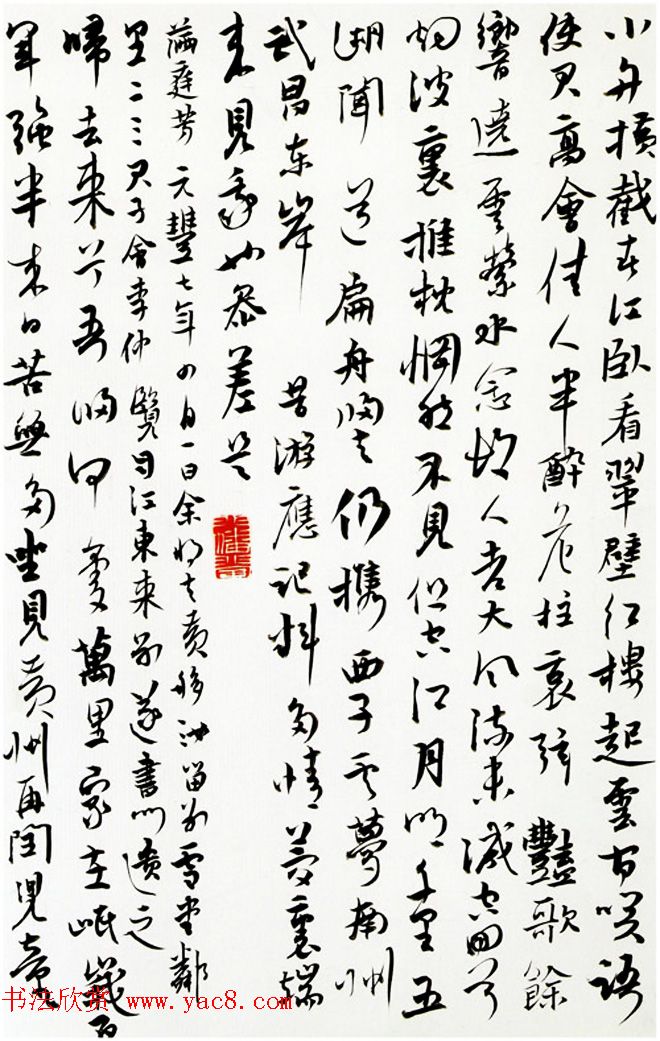 小舟橫截春江臥看翠壁紅樓起雲間笑語
使君高會佳人半醉危柱哀弦豔歌餘
響遶雲縈水念故人老大風流未減空回首
烟波裏推枕惘然不見但空江月明千里五
湖聞道扁舟歸去仍攜西子雲夢南州
武昌東岸 昔游應記料多情夢裏端
來見我也參差是
滿庭芳 元豐七年四月一日余將去黃移汝留別雪堂鄰
里二三君子會李仲覽自江東來別遂書以遺之
歸去來兮吾歸何處萬里家在岷峨百
年強半來日苦無多坐見黃州再閏兒童
书法欣赏 www.yac8.com